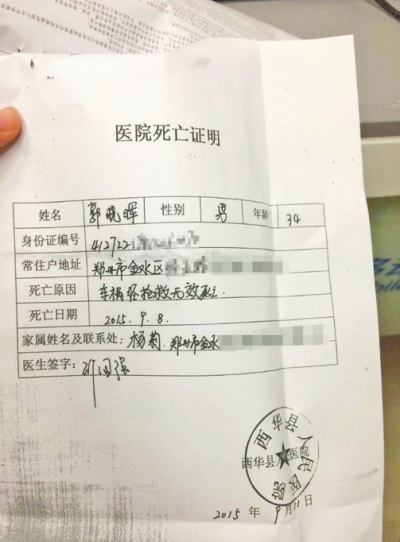 医院死亡证明
姓名 郭晓晖 性别 男 年龄 34
身份证编号 412722
常住户地址 郑州市金水区
死亡原因 车祸经抢救无效死亡
死亡日期 2015.9.8.
家属姓名及联系处: 杨菊.郑州市金水
医生签字:
西华县人民医院
西华县 医院
2015 年 9月11日